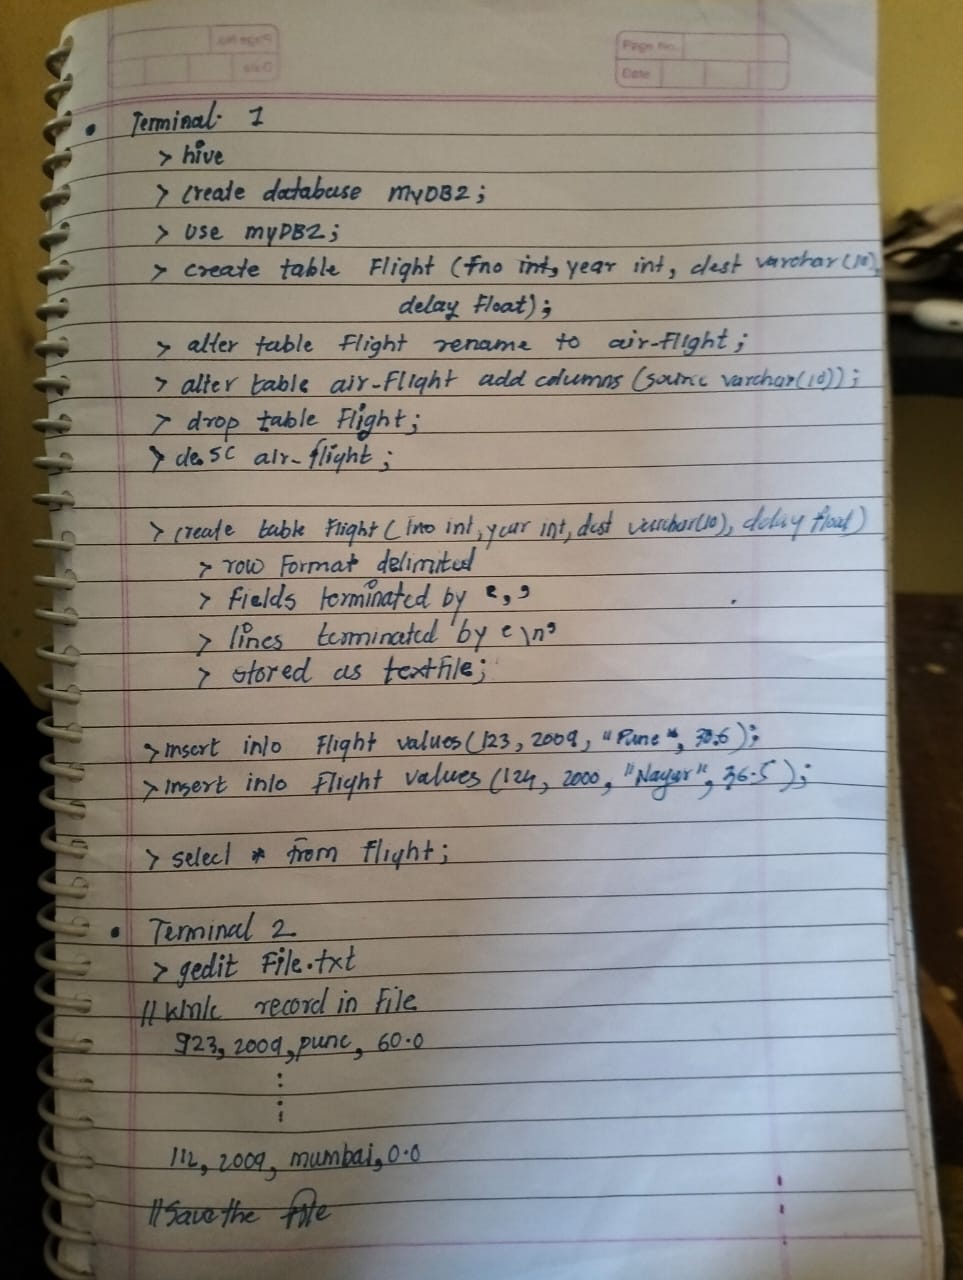 Page No.
Date
• Terminal 1
> hive
> create database myDB2;
> use myDB2;
> create table Flight (fno int, year int, dest varchar(10),
delay float);
> alter table Flight rename to air-flight;
> alter table air-flight add columns (source varchar(10));
> drop table Flight;
> desc air-flight;
> create table Flight (fno int, year int, dest varchar(10), delay float)
> row format delimited
> fields terminated by ‘,’
> lines terminated by ‘\n’
> stored as textfile;
> insert into Flight values(123, 2009, "Pune", 30.6);
> insert into Flight values (124, 2000, "Nagar", 36.5);
> select * from flight;
• Terminal 2
> gedit File.txt
// Write record in file
923, 2009, pune, 60.0
112, 2009, mumbai, 0.0
// Save the file